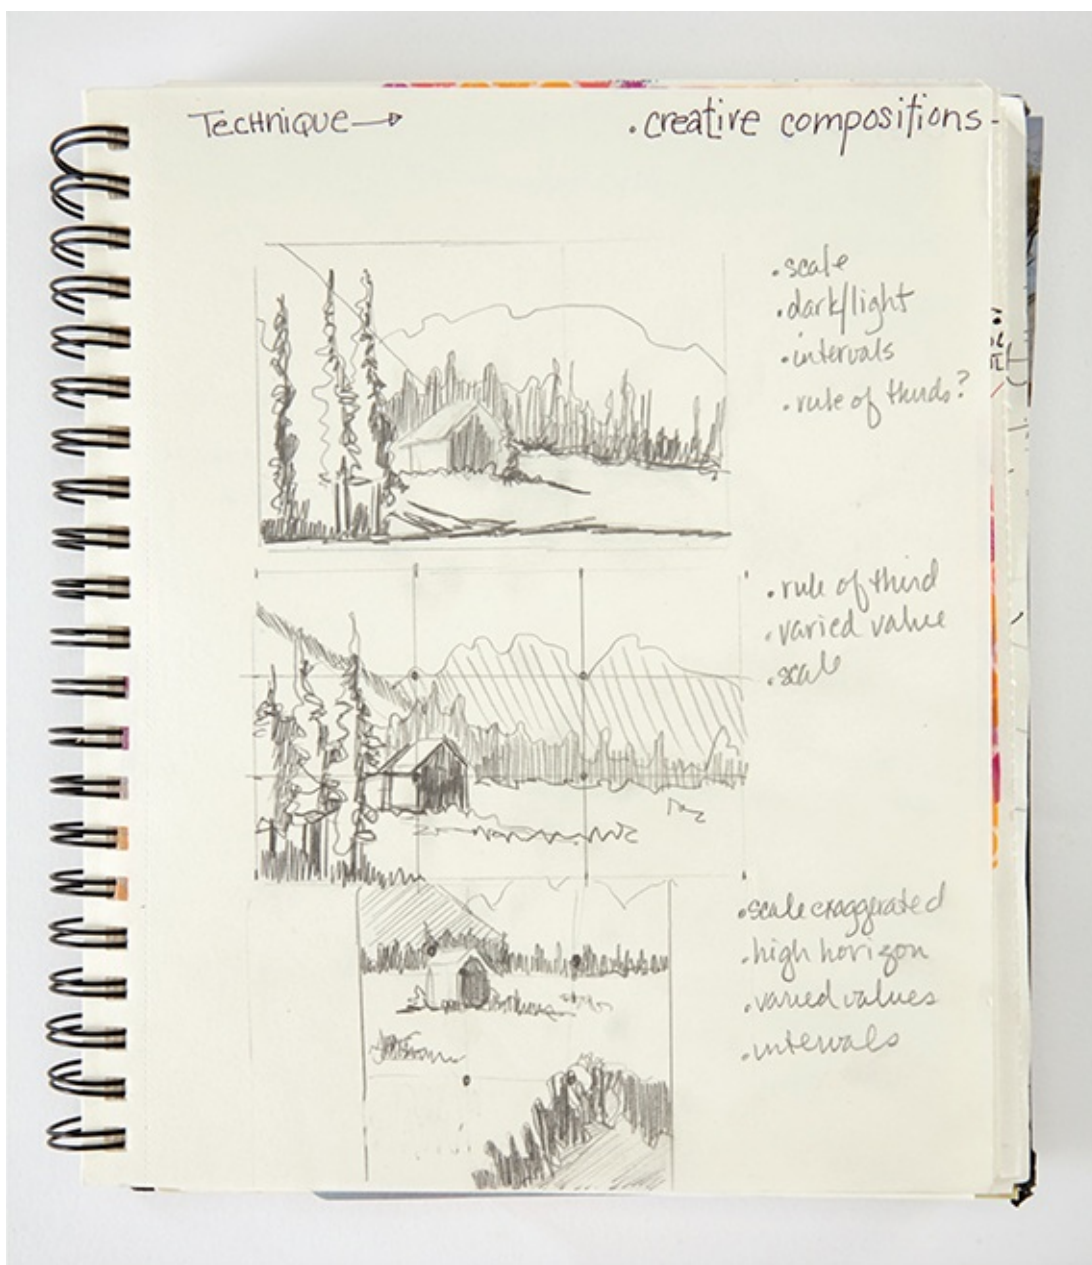 Technique → • creative compositions -
• scale
• dark/light
• intervals
• rule of thirds?
• rule of third
• varied value
• scale
• scale exaggerated
• high horizon
• varied values
• intervals